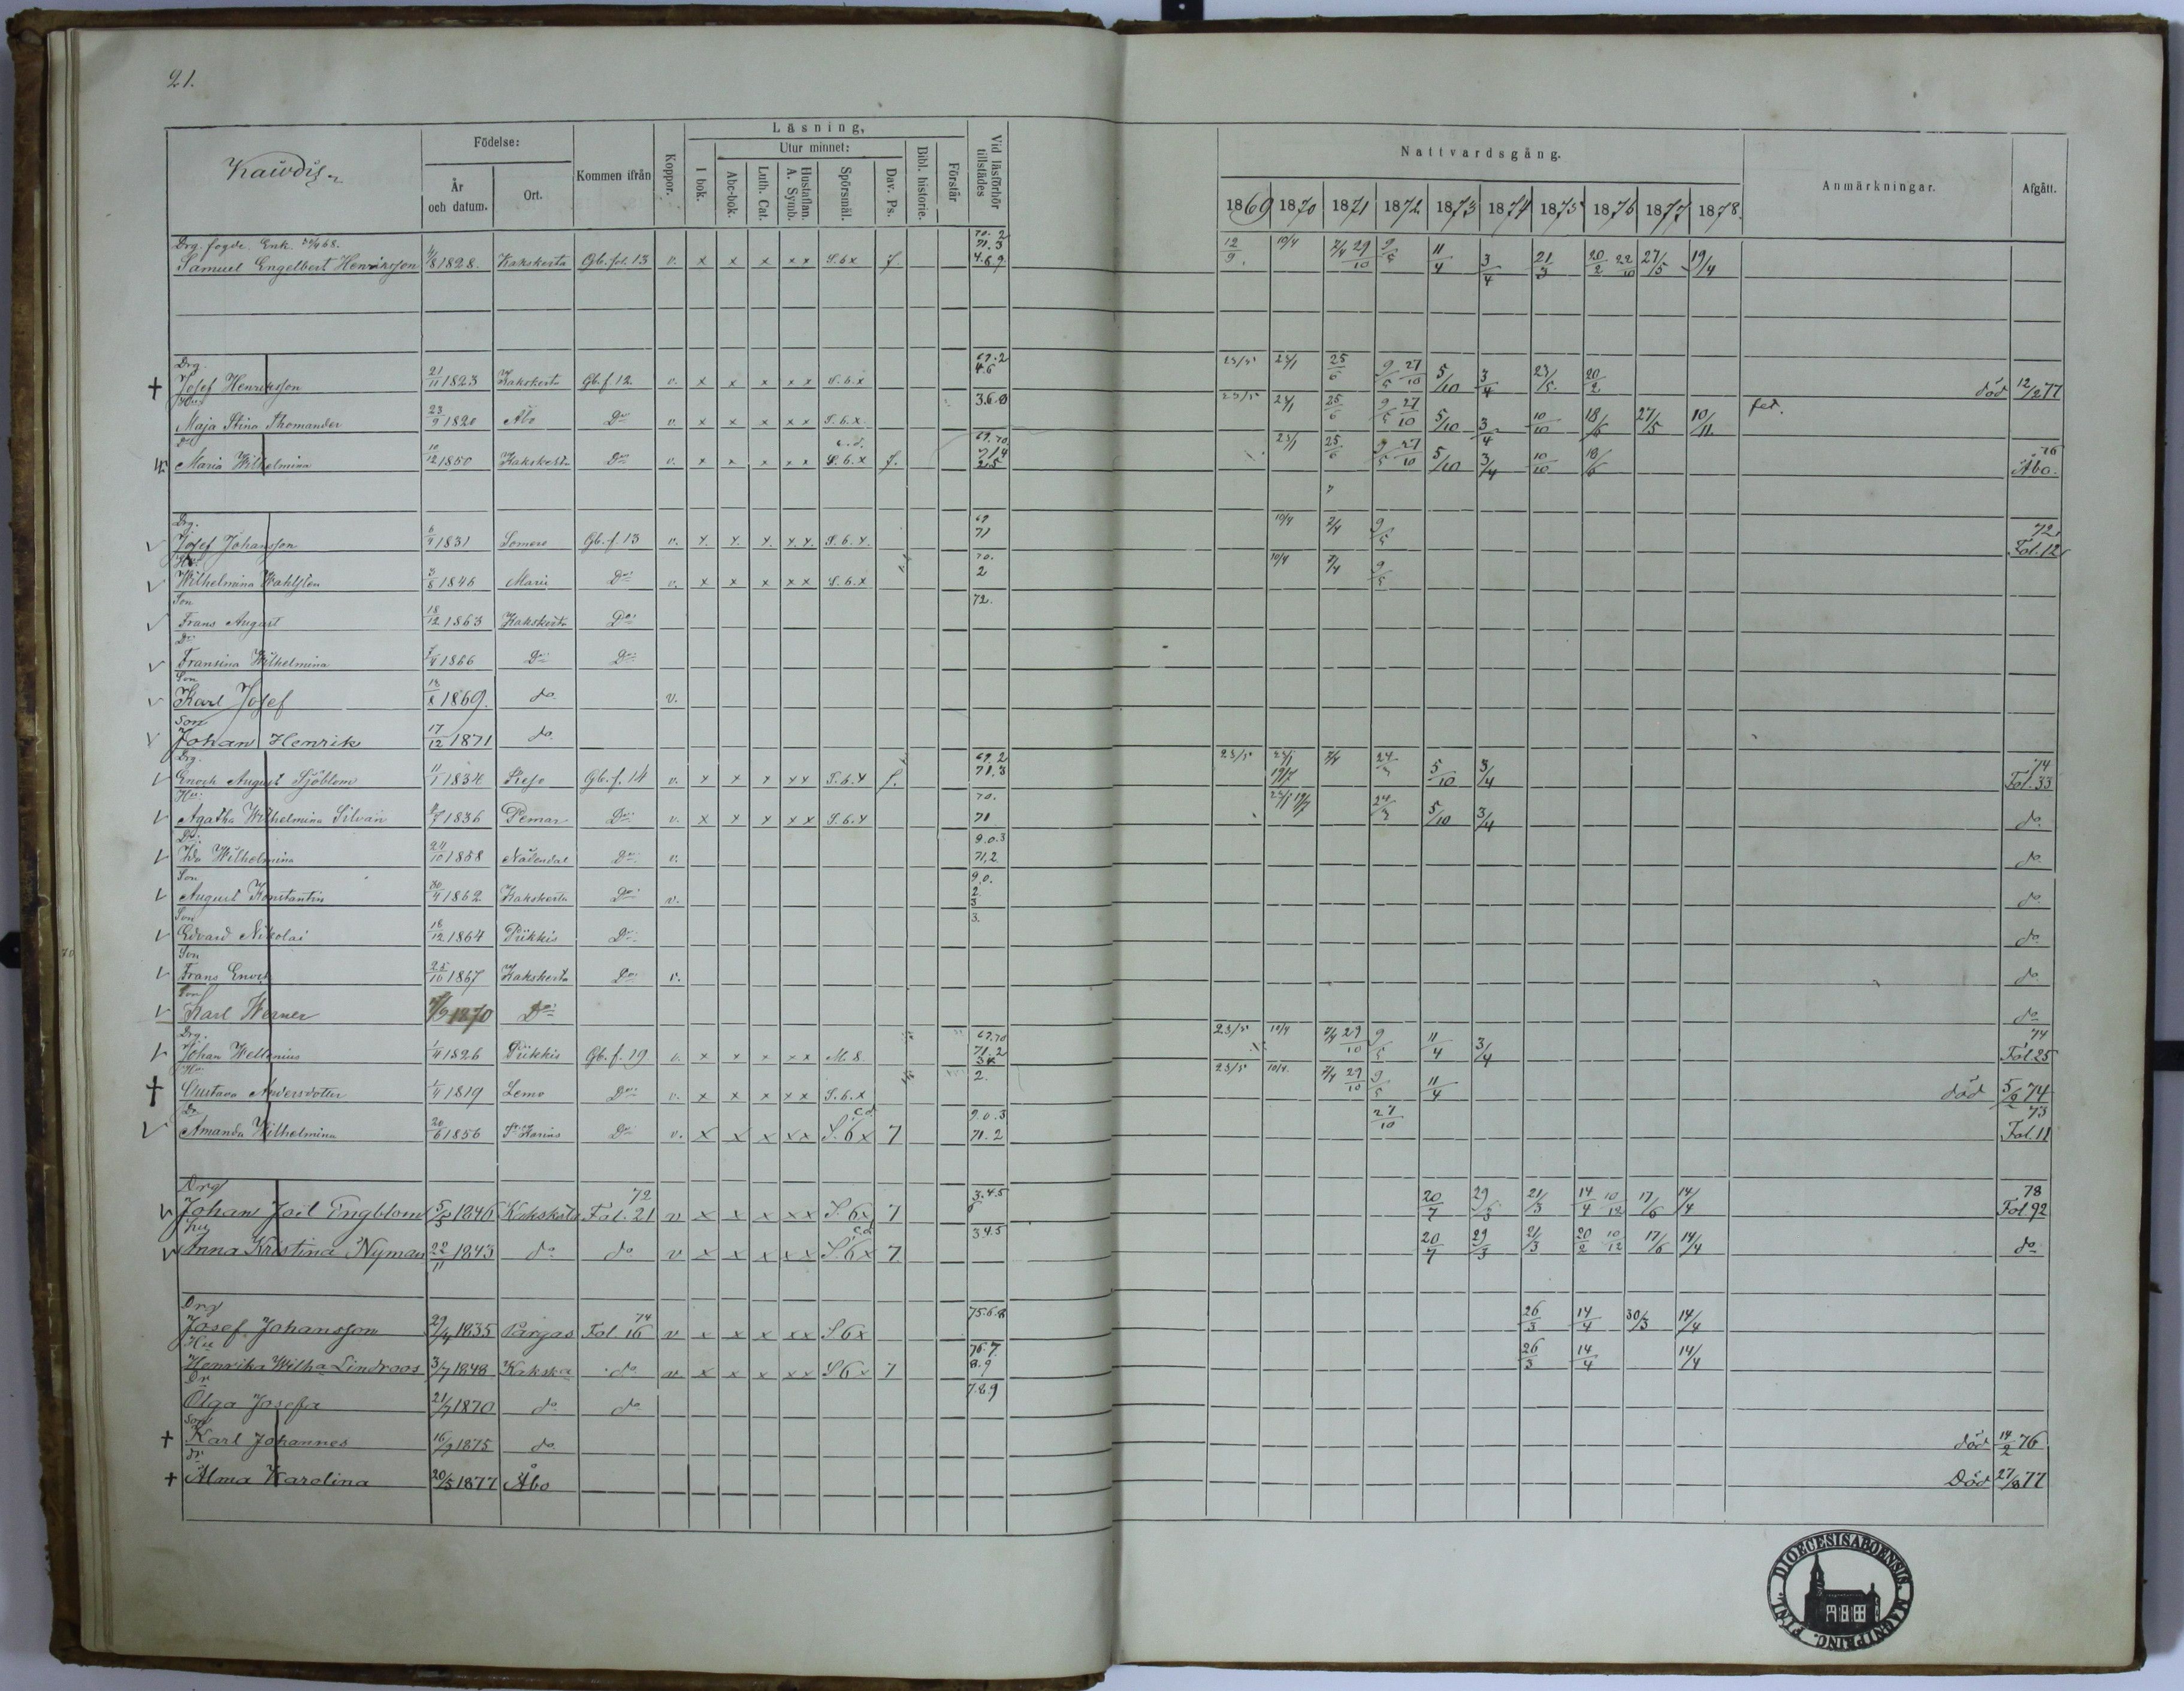 21.
Kaiwdis
Födelse:
År och datum.
Ort.
Kommen ifrån
Koppor.
Läsning,
I bok.
Utur minnet:
Abc-bok.
Luth. Cat.
Hustaflan. A. Symb.
Spörsmål.
Dav. Ps.
Bibl. historie.
Förstår
Vid läsförhör tillstädes
Nattvardsgång.
1869 1870 1871 1872 1873 1874 1875 1876 1877 1878.
Anmärkningar.
Afgått.
Drg. fogde. Enk.
Samuel Engelbert Henriksson 1828. Kakskerta Gb. fol. 13 v. x x x x x S. 6 x 7. 12/9. 10/4 7/4 29/10 9/5 11/4 3/4 21/3 20/2 22/10 27/5 19/4
Drg.
Josef Henriksson 21/11 1823 Kakskerta Gb. f. 12 v. x x x x x S. 6. x 23/5 25/6 9/5 27/10 5/10 3/4 23/5 20/2 död 12/2 77
Hu
Maja Stina Thomander 23/9 1820 Åbo Do v. x x x x x S. 6. x. 3.6.8 23/5 25/6 9/5 27/10 5/10 3/4 10/10 18/6 27/5 10/11
Maria Wilhelmina 10/12 1850 Kakskerta Do v. x x x x x S. 6. x 7. 25/6 9/5 27/10 5/10 3/4 10/10 18/6 76 Åbo.
Drg.
Josef Johansson 6/4 1831 Somero Gb. f. 13 v. x. x. x. x. x. S. 6. x. 69 71 10/4 7/4 9/5 72 Fol. 12
Hu
Wilhelmina Wahlsten 3/8 1846 Marie Do v. x x x x x S. 6. x 70. 2 10/4 7/4 9/5
Son
Frans August 18/12 1863 Kakskerta Do 72.
Dr
Fransina Wilhelmina 1866 Do Do
Son
Karl Josef 18/8 1869. do v.
Son
Johan Henrik 17/12 1871 do
Drg.
Enoch August Sjöblom 11/1 1834 Gb. f. 14 v. x x x x x S. 6. x 7. 69.2 71.3 23/5 7/4 5/10 3/4 74 Fol. 33
Hu
Agatha Wilhelmina Silvan 1836 Pemar Do v. x x x x x S. 6. x 70. 71 5/10 3/4 do
Dr.
Ida Wilhelmina 1858 Nådendal Do v. 9.0.3 71.2 do
Son
August Konstantin 30/4 1862 Kakskerta Do v. 9.0. 2 3 do
Son
Edvard Nikolai 18/12 1864 Piikkis Do 3. do
Son
Frans Enoch 25/10 1867 Kakskerta Do v. do
Son
Karl Werner 1870 Do do
Drg.
Johan Wellenius 1826 Piikkis Gb. f. 19 v. x x x x x M. 8. 23/5 10/4 7/4 29/10 9/5 11/4 3/4 74 Fol 25
Hu
Gustava Andersdotter 1819 Lemo Do v. x x x x x S. 6. x 2. 23/5 10/4. 7/4 29/10 9/5 11/4 död 5/9 74
Dr
Amanda Wilhelmina 20/6 1856 St Karins Do v. x x x x x S. 6 x 7 9.0.3 71.2 27/10 73 Fol. 11
Drg
Johan Joel Engblom 1846 Kakskerta 72 Fol. 21 v x x x x x S. 6 x 7 3.4.5 20/7 29/3 21/3 14/4 10/12 17/6 14/4 78 Fol 92
hu
Anna Kristina Nyman 22/11 1843 do do v x x x x x S. 6 x 7. 3.4.5 20/7 29/3 21/3 20/2 10/12 17/6 14/4 do
Drg
Josef Johansson 29/4 1835 Pargas 74 Fol 16 v x x x x x S 6 x 75.6.8 26/3 14/4 30/3 14/4
Hu
Henrika Wilha Lindroos 3/7 1848 Kakska do v x x x x x S 6 x 7 76.7. 8.9 26/3 14/4 14/4
Dr
Olga Josefa 21/7 1870 do do 7.8.9
Son
Karl Johannes 16/9 1875 do död 14/2 76
dr
Alma Karolina 20/5 1877 Åbo Död 27/8 77
FINL. DIOECESISABOENSIS. MAGNIPRINC.